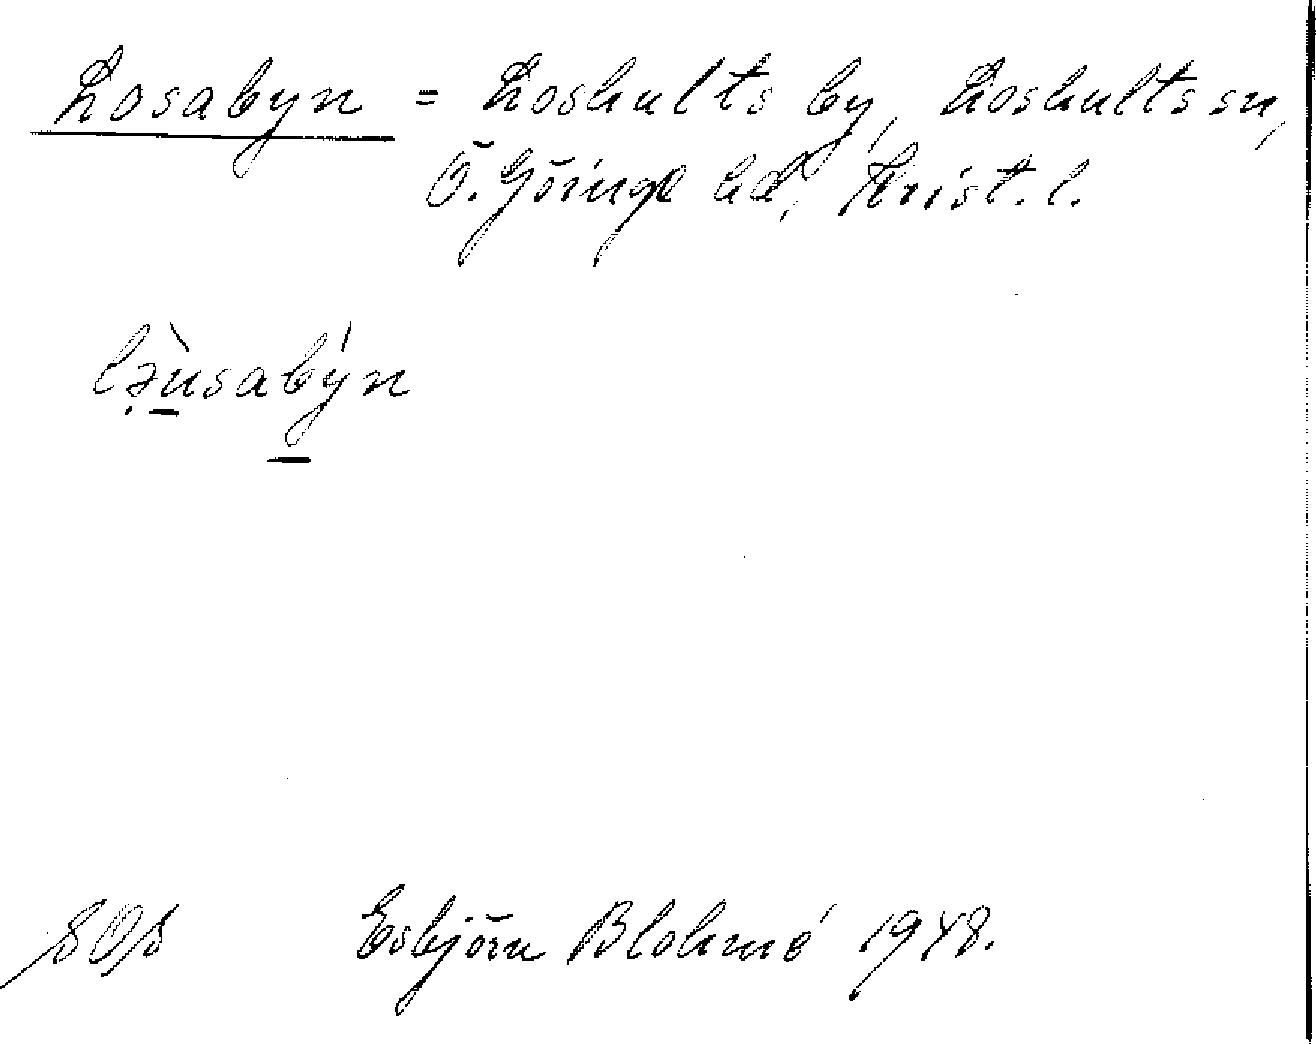 Losabyn = Loshults by, Loshults sn,
Ö. Göinge hd, Krist. l.
lə̣ùsabýn
SOS Esbjörn Blohmé 1948.